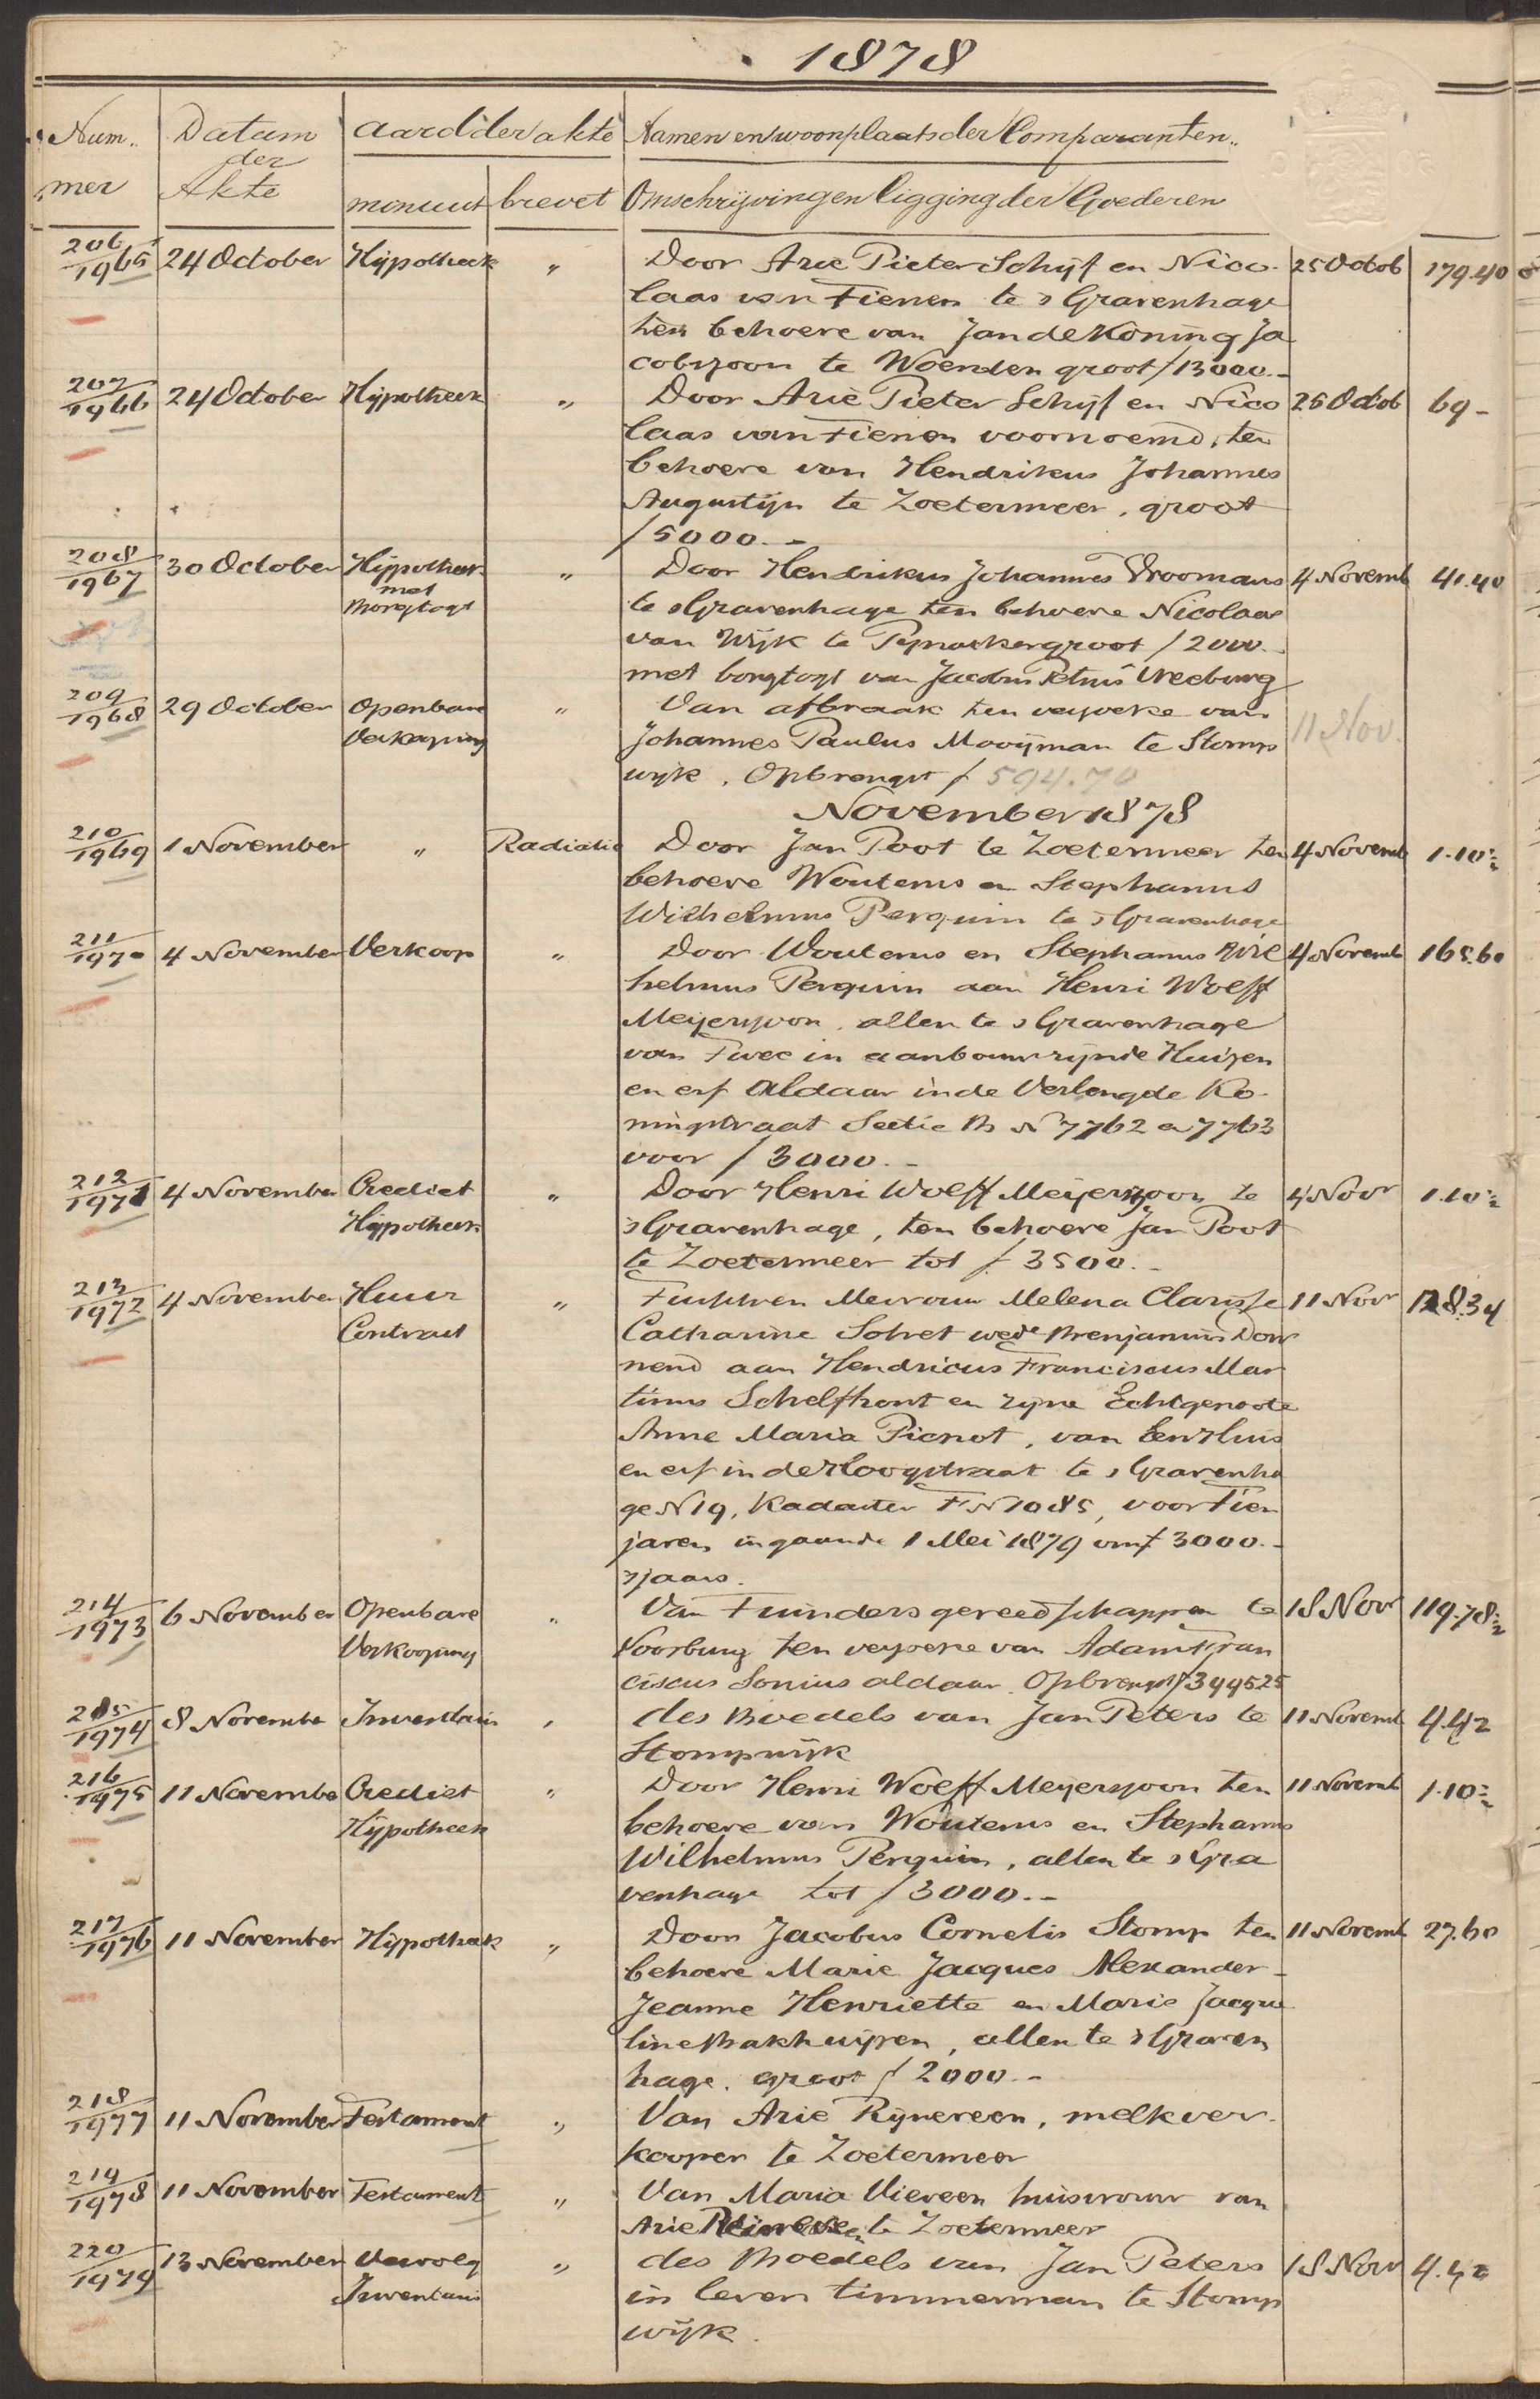 1878
Num.. Datum der aard der akte Namen en woonplaats der Comparanten..
mer Akte minuut brevet Omschrijving en ligging der Goederen
206/1965 24 October Hijpotheek „ Door Arie Pieter Schijf en Nico- 25 Octob 179.40
laas van Tienen te 's Gravenhage
ten behoeve van Jan de Koning Ja
cobszoon te Woerden groot ƒ13000.-
207/1966 24 October Hijpotheek „ Door Arie Pieter Schijf en Nico 25 Octob 69-
laas van Tienen voornoemd, ten
behoeve van Hendrikus Johannes
Augustijn te Zoetermeer, groot
ƒ5000.-
208/1967 30 October Hijpotheek „ Door Hendrikus Johannes Vroomans 4 Novemb 41.40
met te 's Gravenhage ten behoeve Nicolaas
Borgtogt van Wijk te Pijnacker groot ƒ2000.-
met borgtogt van Jacobus Petrus Vreeburg
209/1968 29 October Openbare „ Van afbraak ten verzoeke van 11 Nov.
Verkooping Johannes Paulus Mooijman te Stomp
wijk. Opbrengst ƒ 594.70
November 1878
210/1969 1 November „ Radiatie Door Jan Poot te Zoetermeer ten 4 Novemb 1.10½
behoeve Wouterus en Stephanus
Wilhelmus Perquin te 's Gravenhage
211/1970 4 November Verkoop „ Door Wouterus en Stephanus Wil 4 Novemb 165.60
helmus Perquin aan Henri Wolff
Meijerszoon, allen te 's Gravenhage
van Twee in aanbouw zijnde Huizen
en erf Aldaar in de Verlengde Ko-
ningstraat Sectie B N 7762 en 7763
voor ƒ 3000.-
212/1971 4 November Crediet „ Door Henri Wolff Meijerszoon te 4 Novr 1.10½
Hijpotheek 's Gravenhage, ten behoeve Jan Poot
te Zoetermeer tot ƒ 3500.-
213/1972 4 November Huur „ Tusschen Mevrouw Melena Clarisse 11 Novr 128.34
Contract Catharine Solvet wede Benjamin Dow
nend aan Hendricus Franciscus Mar
tinus Schelfhout en zijne Echtgenoote
Anne Maria Picnot, van Een Huis
en erf in de Hoogstraat te 's Gravenha
ge N 19, Kadaster F N 1085, voor Tien
jaren ingaande 1 Mei 1879 om ƒ 3000.-
's jaars.
214/1973 6 November Openbare „ Van Tuindersgereedschappen te 18 Novr 119.78½
Verkooping Voorburg ten verzoeke van Adam Fran
ciscus Sonius aldaar. Opbrengst ƒ3995.25
215/1974 8 Novembe Inventaris „ des Boedels van Jan Peters te 11 Novemb 4.42
Stompwijk
216/1975 11 Novembe Crediet „ Door Henri Wolff Meijerszoon ten 11 Novemb 1.10½
Hijpotheek behoeve van Wouterus en Stephanus
Wilhelmus Perquin, allen te 's Gra
venhage tot ƒ 3000.-
217/1976 11 November Hijpotheek „ Door Jacobus Cornelis Stomp ten 11 Novemb 27.60
behoeve Marie Jacques Alexander-
Jeanne Henriette en Marie Jacque
line Bakhuijzen, allen te 's Graven
hage. groot ƒ 2000.-
218/1977 11 November Testament „ Van Arie Rijnereen, melkver-
kooper te Zoetermeer
219/1978 11 November Testament „ Van Maria Viereen huisvrouw van
Arie te Zoetermeer
220/1979 13 November Vervolg „ des Boedels van Jan Peters 18 Novr 4.42
Inventaris in leven timmerman te Stomp
wijk.